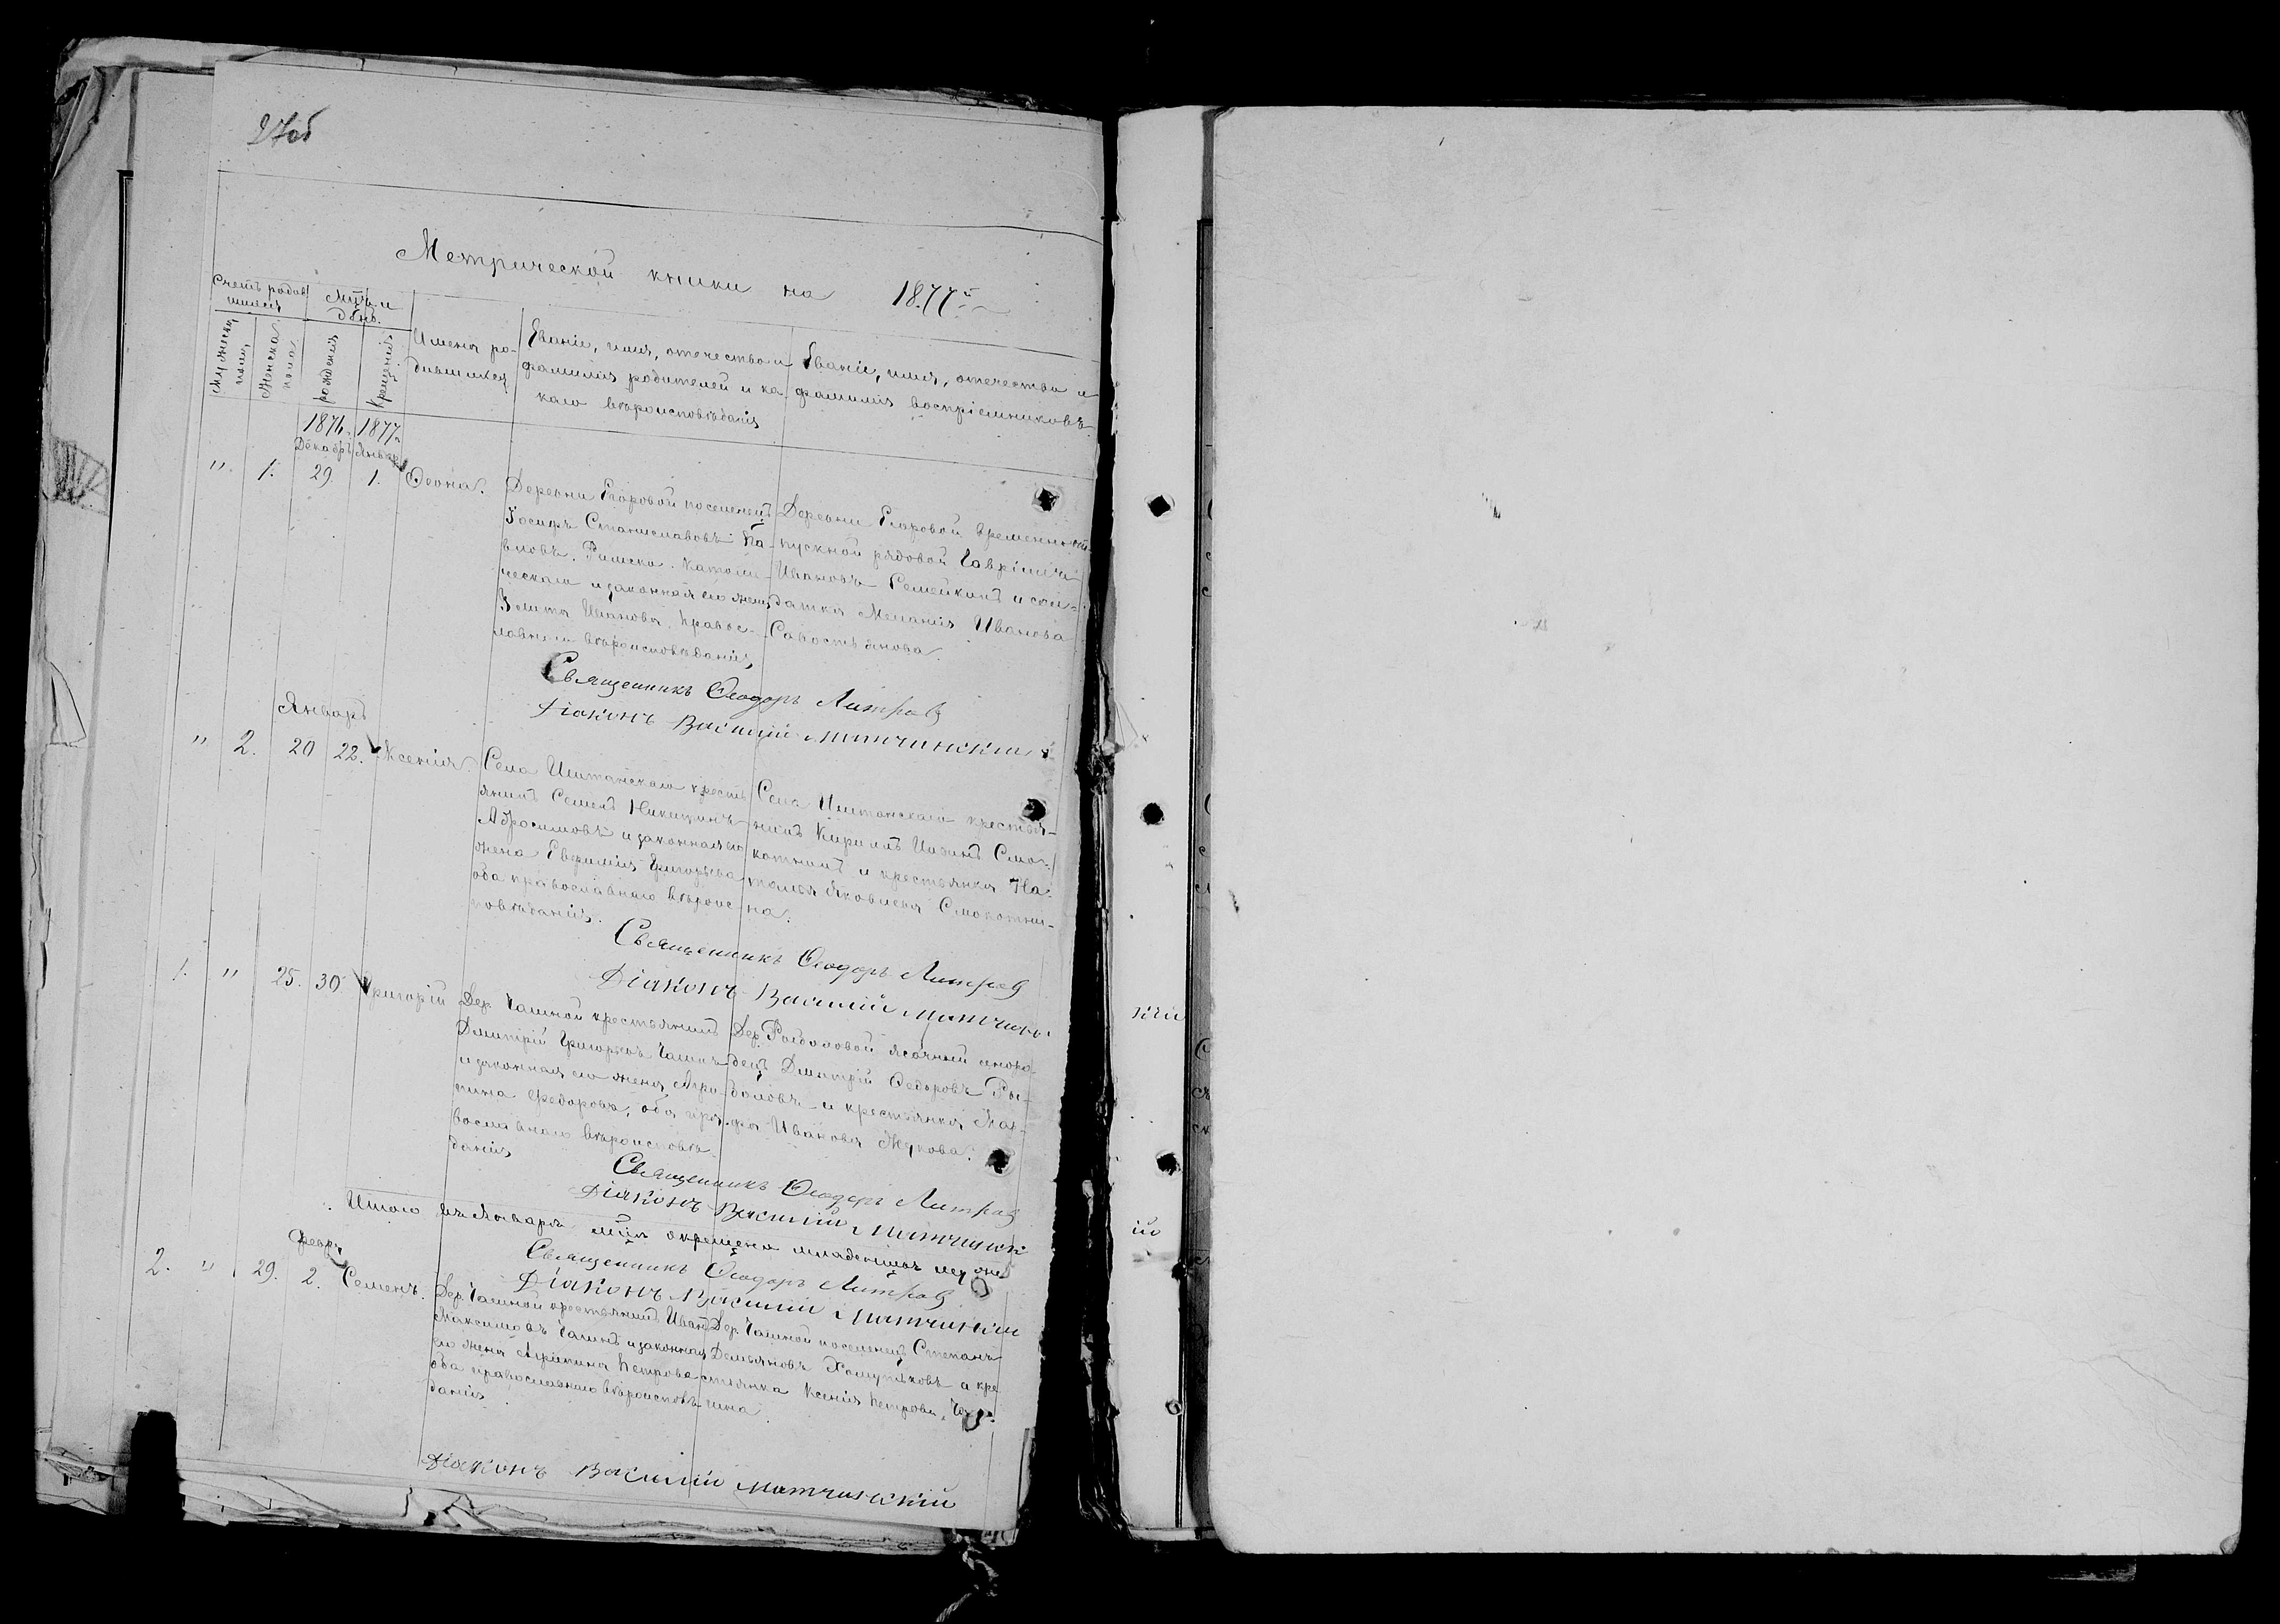 27об
Метрической книги на 1877й
Счетъ родив
шихся
Мцъ и
день.
Мужеска
пола,
Женска
пола
рожденія
Крещенія
Имена ро-
дившихся
Званіе, имя, отечество и
фамилія родителей и ка-
каго вѣроисповѣданія
Званіе, имя, отечество и
фамилія воспріемниковъ
1876. 1877.
Декабрь Январ
" 1. 29 1. Ѳеона.
Деревни Егоровой поселенецъ
Іосифъ Станиславовъ Па-
вловъ. Римско. Католи-
ческаго и законная его жена
Иванова, Правос-
лавнаго вѣроисповѣданія
Деревни Егоровой, временно от-
пускной рядовой Гавріилъ
Ивановъ Семейкинъ и сол-
датка Меланія Иванова
Савостьянова.
Священникъ Ѳеодоръ
Діаконъ Василій Матчинскій
Январь
" 2. 20 22. Ксенія.
Села Иштанскаго кресть
янинъ Семенъ Никитинъ
Абросимовъ и законная его
жена Евфимія Григорьева
оба православнаго вѣроис-
повѣданія.
Села Иштанскаго крестья-
нинъ Кириллъ Смо-
котнинъ и крестьянка На-
талья Яковлева Смокотни-
на.
Священникъ Ѳеодоръ
Діаконъ Василій Матчинс
1. " 25. 30 Григорій
Дер. Чагиной крестьянинъ
Дмитрій Григорьевъ Чагинъ
и законная его жена Агри-
пина Федорова, оба пра-
вославнаго вѣроисповѣ-
данія
Дер. Ясачный иноро-
децъ Дмитрій Ѳедоровъ
и крестьянка
Иванова Жукова.
Священникъ Ѳеодоръ
Діаконъ Василій Матчинск
Итого въ Январѣ мцѣ окрещено младенцевъ
Священникъ Ѳеодоръ
Діаконъ Василій Матчинскій
Февр.
2. " 29. 2. Семенъ.
Дер. Чагиной крестьянинъ Иванъ
Максимовъ Чагинъ и законная
его жена Агрипина Петрова
оба православнаго вѣроисповѣ-
данія
Дер. Чагиной поселенецъ Степанъ
Демьяновъ Хомутяковъ и кре
стьянка Ксенія Петрова, Ча-
гина.
Діаконъ Василій Матчинскій